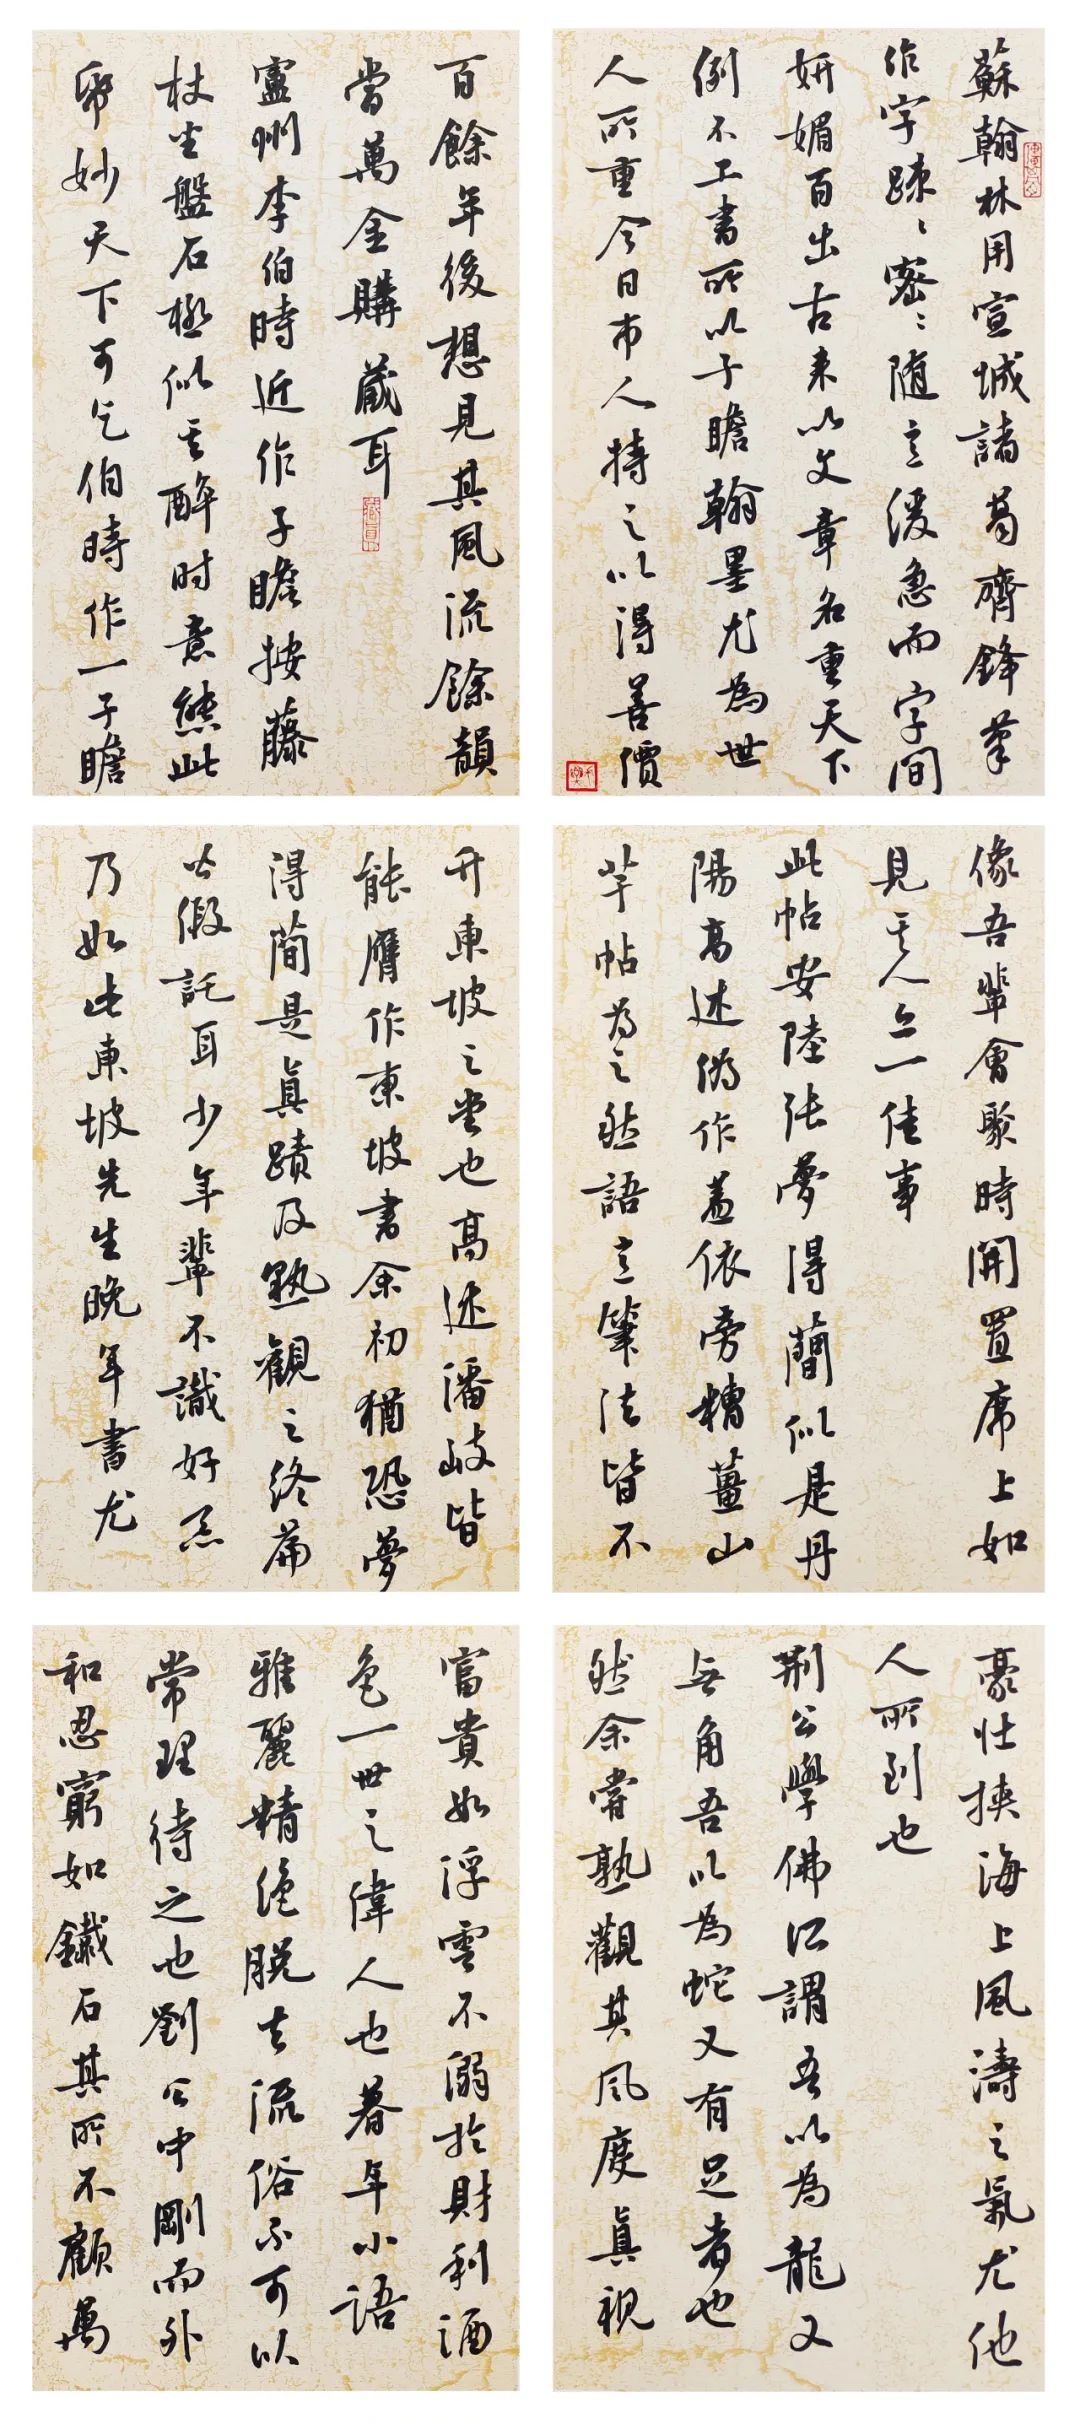 蘇翰林用宣城諸葛齊鋒筆
作字疎〻密〻随意緩急而字間
妍媚百出古来以文章名重天下
例不工書所以子瞻翰墨尤為世
人所重今日市人持之以得善價
百餘年後想見其風流餘韻
當萬金購藏耳
廬州李伯時近作子瞻按藤
杖坐盤石極似其醉时意態此
紙妙天下可乞伯時作一子瞻
像吾輩會聚時開置席上如
見其人亦一佳事
此帖安陸張夢得簡似是丹
陽高述偽作蓋依旁糟薑山
芋帖為之然語意筆法皆不
升東坡之堂也高述潘岐皆
能贋作東坡書余初猶恐夢
得簡是真蹟及熟觀之終篇
皆假託耳少年輩不識好惡
乃如此東坡先生晚年書尤
豪壮挾海上風濤之氣尤他
人所到也
荆公學佛所謂吾以為龍又
無角吾以為蛇又有足者也
然余嘗熟觀其風度真視
富貴如浮雲不溺於財利酒
色一世之偉人也暮年小語
雅麗精絶脱去流俗不可以
常理待之也劉公中剛而外
和忍窮如鐵石其所不顧萬